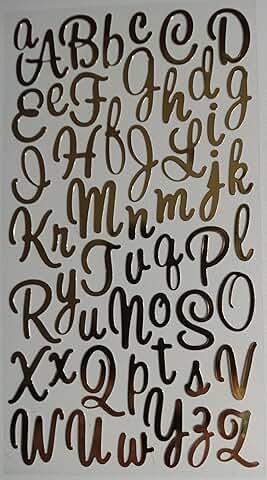 a A B b c C D
E e F G h d g
I H f J L i
M n m j k
K r T v q P l
R y u N o S O
X x Q p t s V
W U w Y z Z